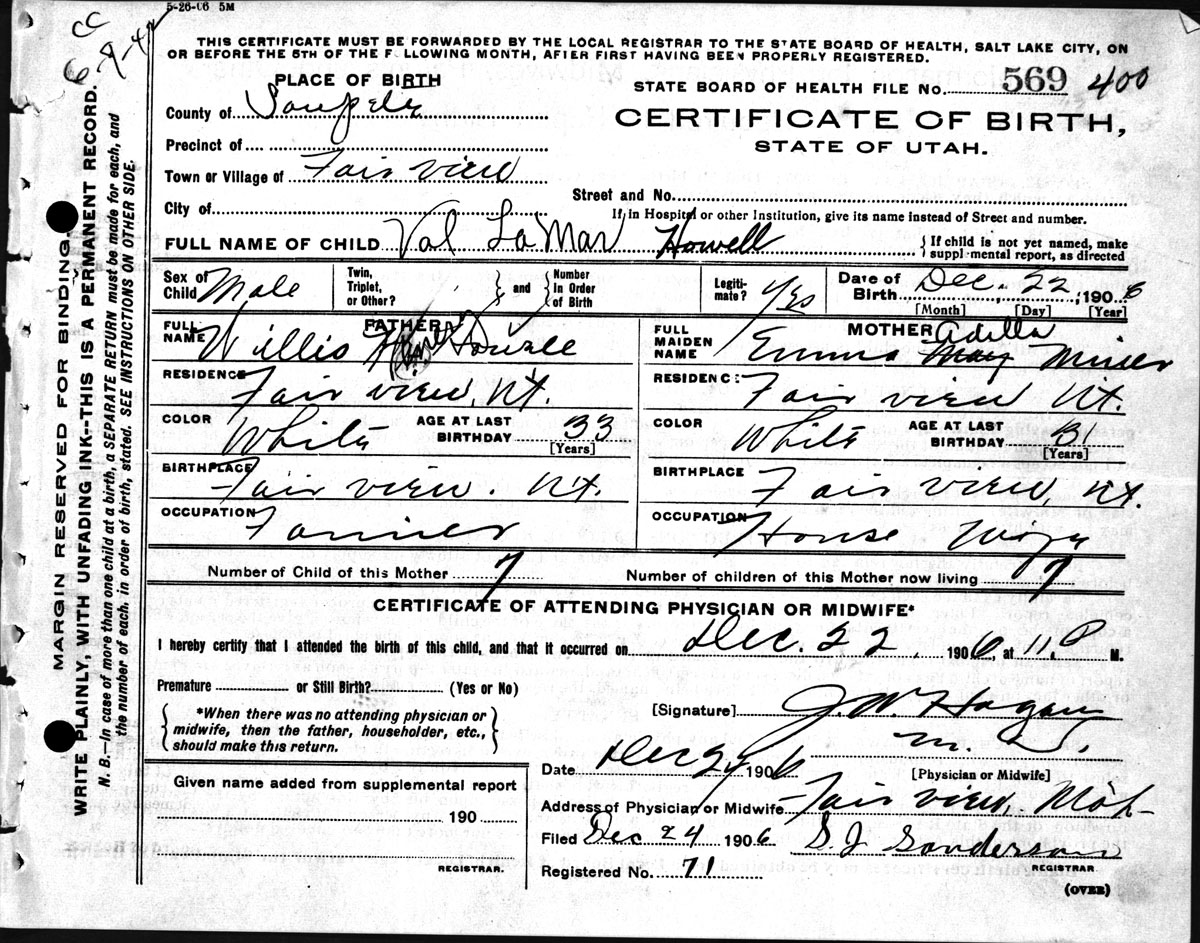 5-26-06 5M
CC
6-9-4
THIS CERTIFICATE MUST BE FORWARDED BY THE LOCAL REGISTRAR TO THE STATE BOARD OF HEALTH, SALT LAKE CITY, ON
OR BEFORE THE 5TH OF THE F.LLOWING MONTH, AFTER FIRST HAVING BEEN PROPERLY REGISTERED.
MARGIN RESERVED FOR BINDING.
WRITE PLAINLY, WITH UNFADING INK--THIS IS A PERMANENT RECORD.
N. B.—In case of more than one child at a birth, a SEPARATE RETURN must be made for each, and
the number of each, in order of birth, stated. SEE INSTRUCTIONS ON OTHER SIDE.
PLACE OF BIRTH
STATE BOARD OF HEALTH FILE No. 569 400
County of Sanpete
CERTIFICATE OF BIRTH,
STATE OF UTAH.
Precinct of
Town or Village of Fair view
Street and No.
City of
If in Hospital or other Institution, give its name instead of Street and number.
FULL NAME OF CHILD Val La Mar Howell { If child is not yet named, make
suppl·mental report, as directed
Sex of Child Male Twin, Triplet, or Other? } and { Number In Order of Birth Legiti-mate? Yes Date of Birth Dec. 22, 1906
[Month] [Day] [Year]
FATHER MOTHER
FULL NAME Willis Howell FULL MAIDEN NAME Emma Adilla May Miner
RESIDENCE Fair view, Ut. RESIDENC: Fair view Ut.
COLOR White AGE AT LAST BIRTHDAY 33 [Years] COLOR White AGE AT LAST BIRTHDAY 31 [Years]
BIRTHPLACE Fair view. Ut. BIRTHPLACE Fair view, Ut.
OCCUPATION Farmer OCCUPATION House Wife
Number of Child of this Mother 7 Number of children of this Mother now living 7
CERTIFICATE OF ATTENDING PHYSICIAN OR MIDWIFE*
I hereby certify that I attended the birth of this child, and that it occurred on Dec. 22, 1906, at 11. P M.
Premature or Still Birth? (Yes or No)
{ *When there was no attending physician or
midwife, then the father, householder, etc.,
should make this return. }
[Signature] J. W. Hagan
M. D.
Date Dec 24 1906 [Physician or Midwife]
Given name added from supplemental report
190
REGISTRAR.
Address of Physician or Midwife Fair view,
Filed Dec 24 1906 S. J. Sanderson
Registered No. 71 REGISTRAR
(OVER)